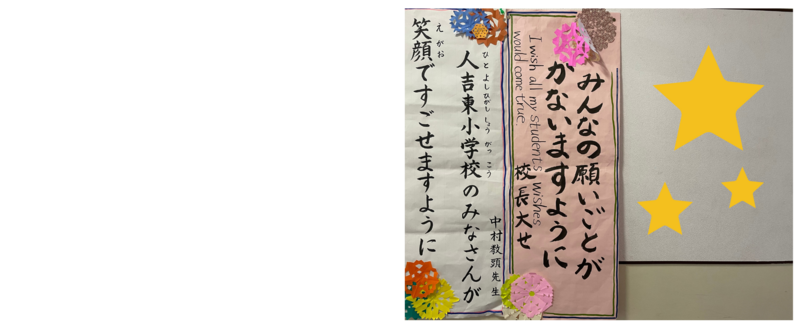 みんなの願いごとが
かないますように
I wish all my students' wishes
would come true.
校長大せ
中村教頭先生
ひとよしひがししょうがっこう
人吉東小学校のみなさんが
えがお
笑顔ですごせますように